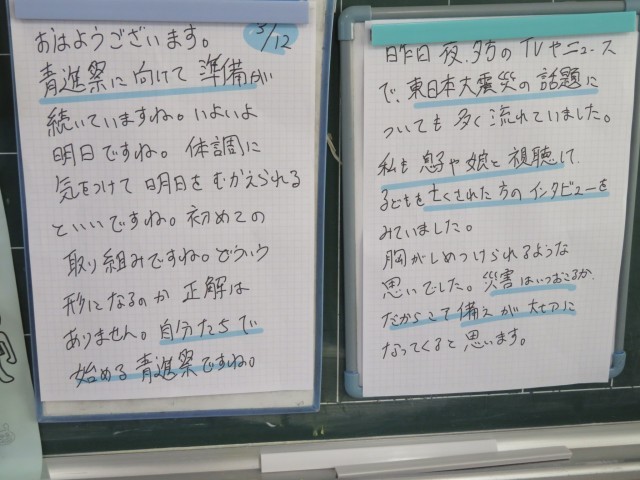 おはようございます。
3/12
青進祭に向けて 準備が
続いていますね。いよいよ
明日ですね。体調に
気をつけて 明日を むかえられる
といいですね。初めての
取り組みですね。どういう
形になるのか 正解は
ありません。自分たちで
始める 青進祭ですね。
昨日 夜、夕方の TVやニュース
で、東日本大震災の話題に
ついても 多く 流れていました。
私も 息子や娘と 視聴して
子どもを亡くされた方のインタビューを
みていました。
胸がしめつけられるような
思いでした。災害はいつおこるか
だからこそ 備えが 大切に
なってくると 思います。